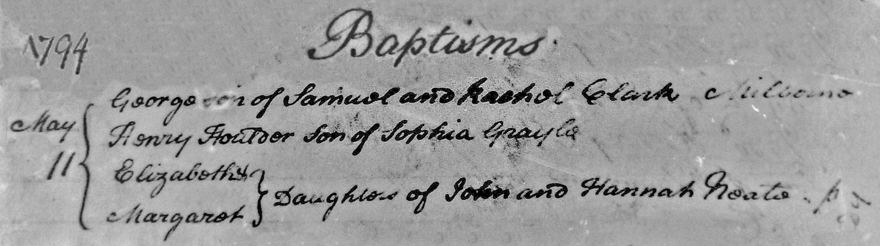 1794
Baptisms
May 11
George son of Samuel and Rachel Clark
Henry Houlder Son of Sophia Grayle
Elizabeth &
Margaret
Daughters of John and Hannah Neate